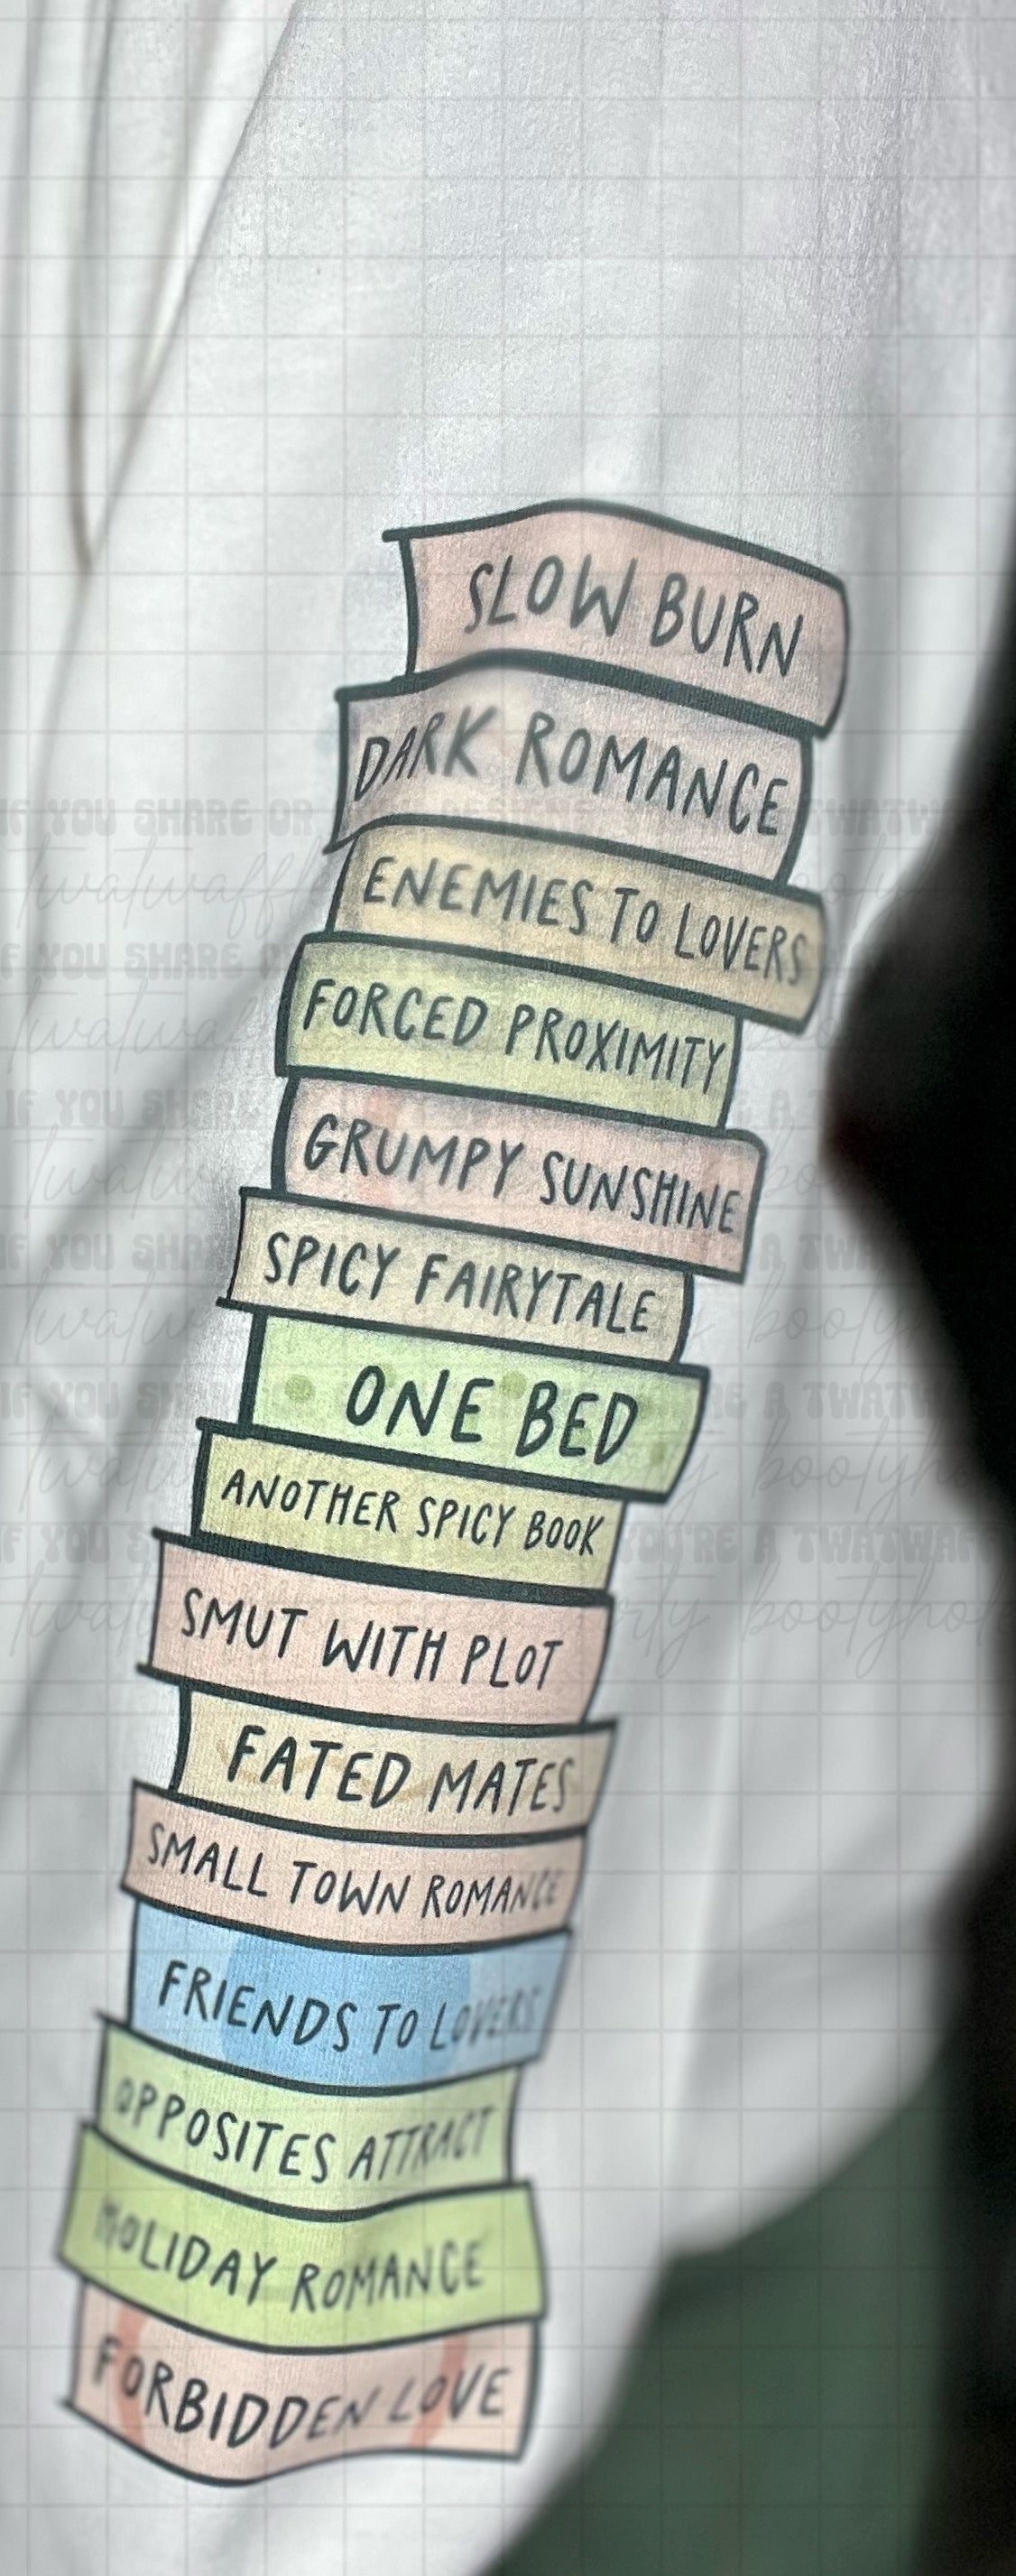 SLOW BURN
DARK ROMANCE
ENEMIES TO LOVERS
FORCED PROXIMITY
GRUMPY SUNSHINE
SPICY FAIRYTALE
ONE BED
ANOTHER SPICY BOOK
SMUT WITH PLOT
FATED MATES
SMALL TOWN ROMANCE
FRIENDS TO LOVERS
OPPOSITES ATTRACT
HOLIDAY ROMANCE
FORBIDDEN LOVE
IF YOU SHARE OR DESIGNS TWATWA
IF YOU SHARE
IF YOU SHARE A
IF YOU SHA A TWA
IF YOU A TWATW
IF YOU YOU'RE A TWATWA